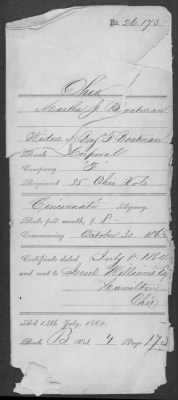 No. 26.173
Ohio
Martha J. Bootman
Widow of Benj F Bootman
Rank Corporal
Company "F"
Regiment 35 Ohio Vols
Cincinnati Agency
Rate per month, $ 8-
Commencing October 20 1863
Certificate dated July 8 1864
and sent to Israel Williams Esq
Hamilton
Ohio
Act 14th July, 1862.
Book B Vol. 4 Page 173